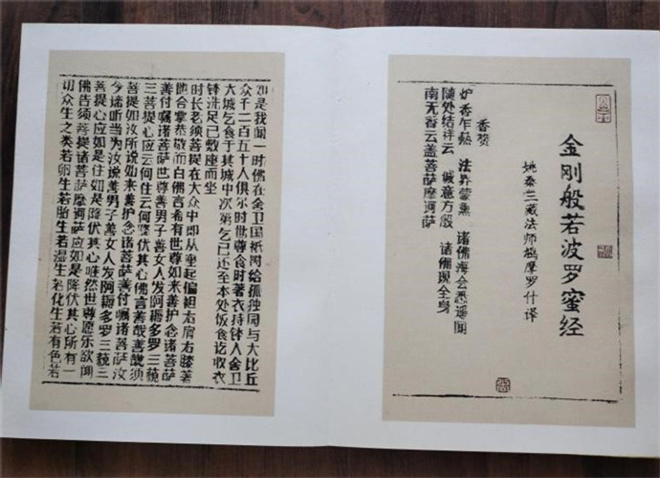 金刚般若波罗蜜经
姚秦三藏法师鸠摩罗什译
香赞
炉香乍热 法界蒙熏 诸佛海会悉遥闻
随处结祥云 诚意方殷 诸佛现全身
南无香云盖菩萨摩诃萨
如是我闻一时佛在舍卫国祇树给孤独园与大比丘
众千二百五十人俱尔时世尊食时著衣持钵入舍卫
大城乞食于其城中次第乞已还至本处饭食讫收衣
钵洗足已敷座而坐
时长老须菩提在大众中即从座起偏袒右肩右膝著
地合掌恭敬而白佛言希有世尊如来善护念诸菩萨
善付嘱诸菩萨世尊善男子善女人发阿耨多罗三藐
三菩提心应云何住云何降伏其心佛言善哉善哉须
菩提如汝所说如来善护念诸菩萨善付嘱诸菩萨汝
今谛听当为汝说善男子善女人发阿耨多罗三藐三
菩提心应如是住如是降伏其心唯然世尊愿乐欲闻
佛告须菩提诸菩萨摩诃萨应如是降伏其心所有一
切众生之类若卵生若胎生若湿生若化生若有色若